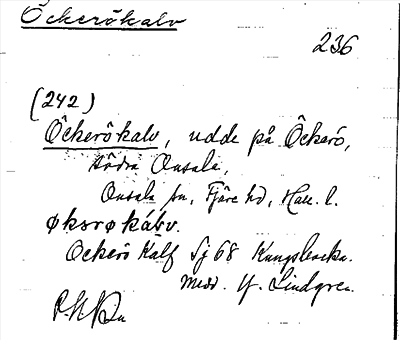 Öckerökalv
236
(242)
Öckerökalv, udde på Öckerö,
södra Onsala,
Onsala sn, Fjäre hd, Hall. l.
øksrøkálv.
Öckerö Kalf Sj 68 Kungsbacka.
Medd. Hj. Lindgren.